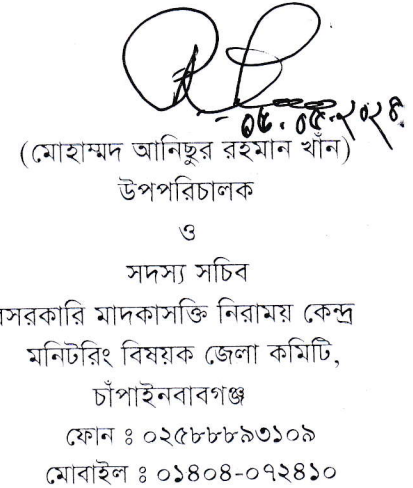 ০৫.০৫.২০২৪
(মোহাম্মদ আনিছুর রহমান খাঁন)
উপপরিচালক
ও
সদস্য সচিব
বেসরকারি মাদকাসক্তি নিরাময় কেন্দ্র
মনিটরিং বিষয়ক জেলা কমিটি,
চাঁপাইনবাবগঞ্জ
ফোন ঃ ০২৫৮৮৮৯৩১০৯
মোবাইল ঃ ০১৪০৪-০৭২৪১০